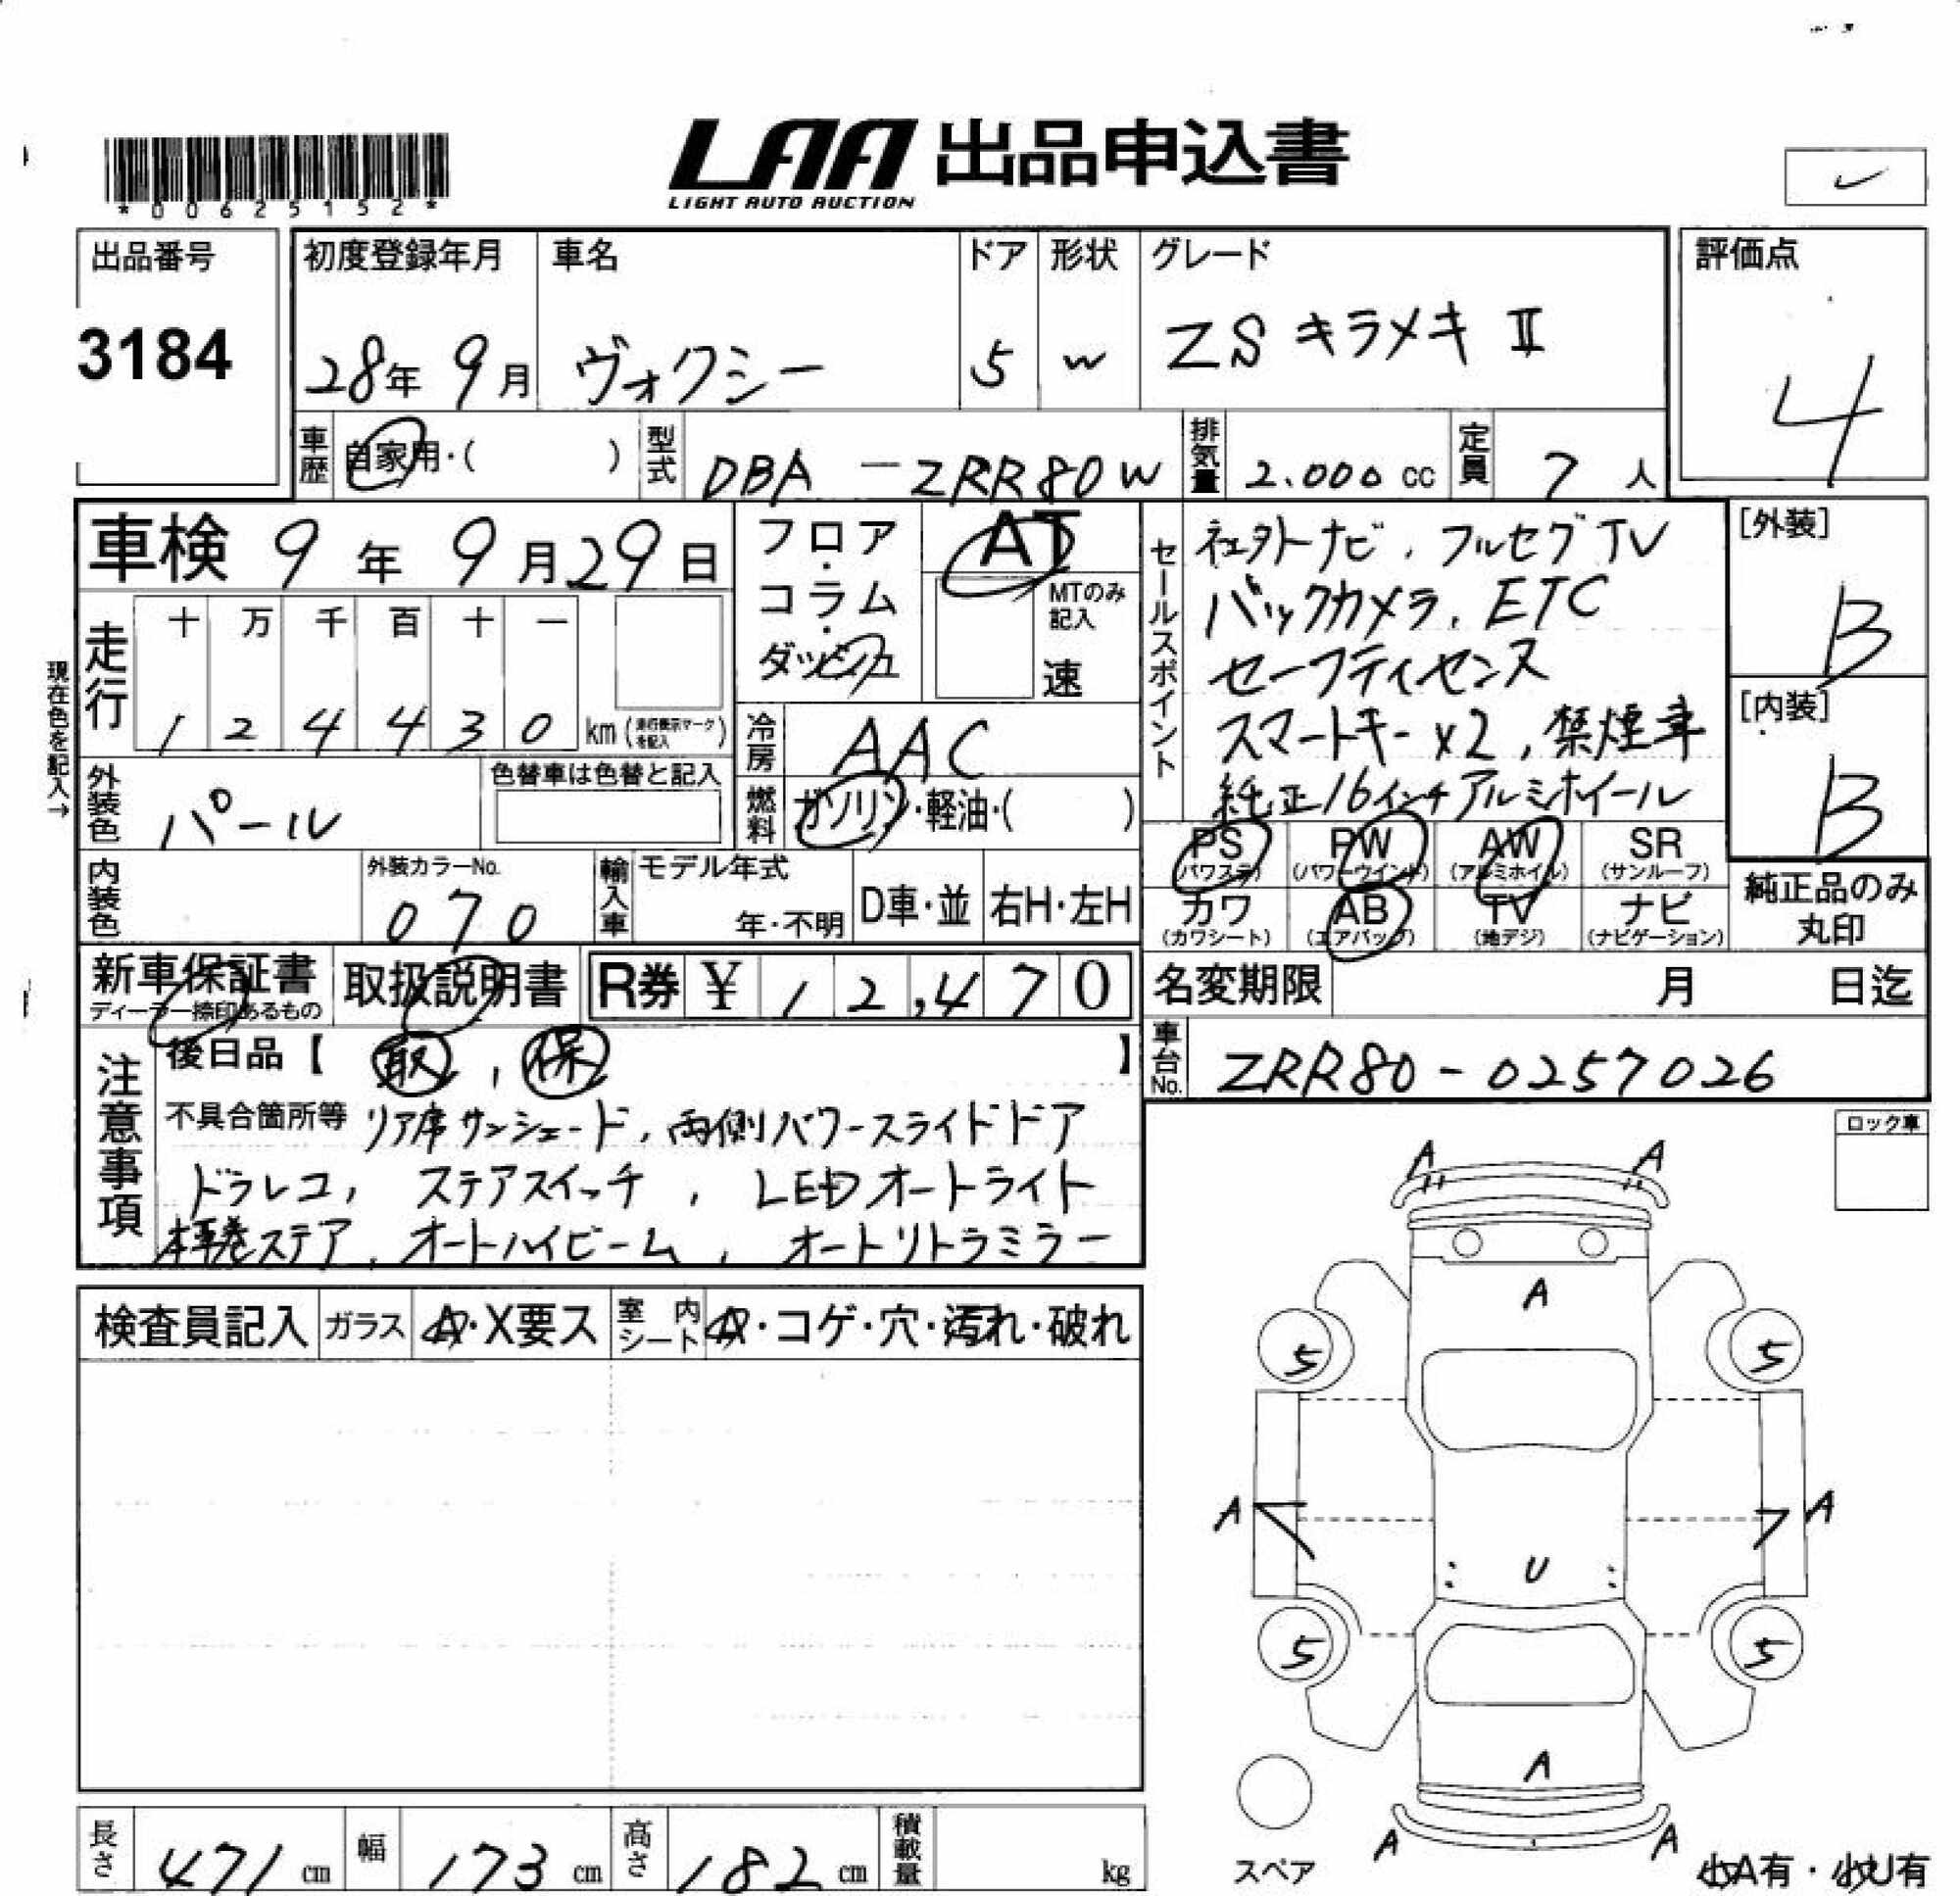 *00625152*
LAA 出品申込書
LIGHT AUTO AUCTION
出品番号
3184
初度登録年月
28年 9月
車名
ヴォクシー
ドア
5
形状
W
グレード
ZS キラメキ II
評価点
4
車歴 自家用・( )
型式 DBA-ZRR80W
排気量 2.000 cc
定員 7 人
車検 9年 9月29日
走行
十 万 千 百 十 一
1 2 4 4 3 0 km (走行表示マークを記入)
フロア・コラム・ダッシュ
AT
MTのみ記入
速
冷房 AAC
燃料 ガソリン・軽油・( )
現在色を記入→
外装色 パール
色替車は色替と記入
内装色
外装カラーNo.
070
輸入車
モデル年式
年・不明
D車・並
右H・左H
セールスポイント
社外ナビ, フルセグTV
バックカメラ, ETC
セーフティセンス
スマートキーx2, 禁煙車
純正16インチアルミホイール
[外装]
B
[内装]
B
PS (パワステ)
PW (パワーウインド)
AW (アルミホイル)
SR (サンルーフ)
カワ (カワシート)
AB (エアバッグ)
TV (地デジ)
ナビ (ナビゲーション)
純正品のみ丸印
新車保証書
ディーラー捺印あるもの
取扱説明書
R券 ¥ 12,470
名変期限 月 日迄
車台No. ZRR80-0257026
注意事項
後日品【 取, 保 】
不具合箇所等 リア席サンシェード, 両側パワースライドドア
ドラレコ, ステアスイッチ, LEDオートライト
本革巻ステア, オートハイビーム, オートリトラミラー
検査員記入
ガラス A・X要ス
室内シート A・コゲ・穴・汚れ・破れ
ロック車
A A
A
5 5
A A
U
5 5
A
A A
スペア
小A有・小U有
長さ 471 cm
幅 173 cm
高さ 182 cm
積載量 kg